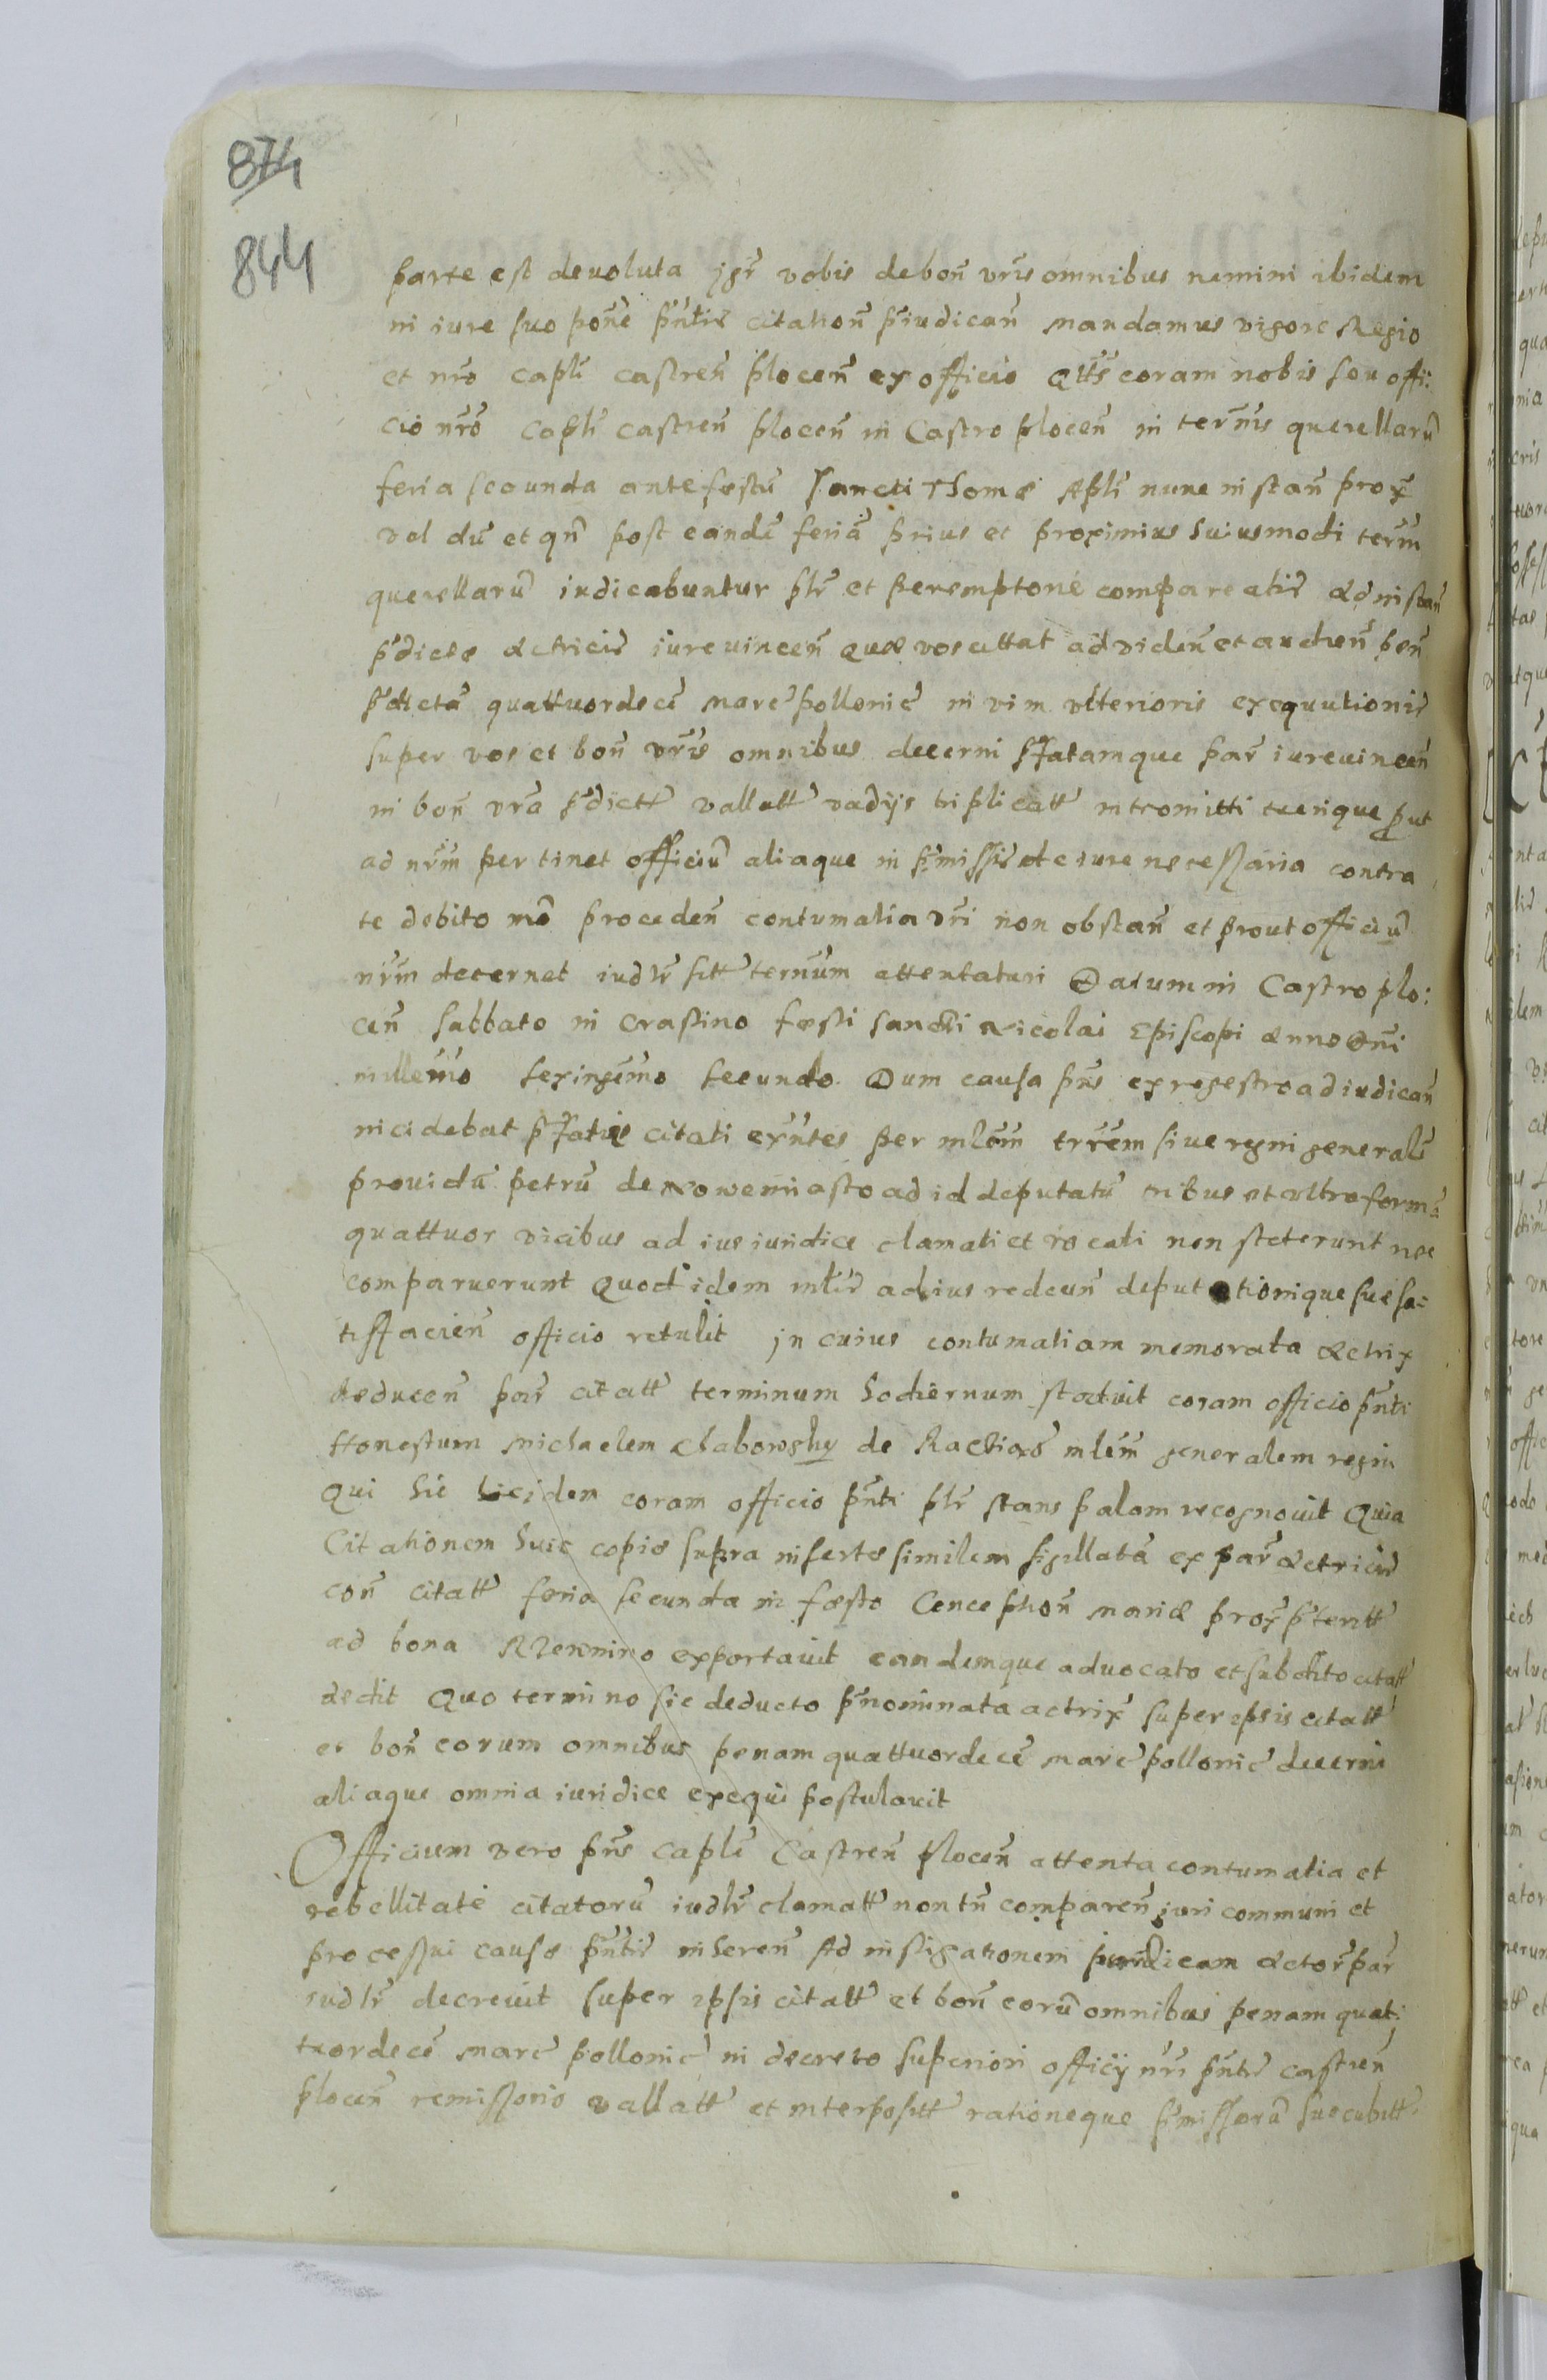 874
844
parte est devoluta igr̃ vobis de bon̄ vr̃is omnibus nemini ibidem
in iure suo põne p̃ntis citation̄ p̃iudican̄ mandamus vigore Regio
et nr̃o capli castren̄ plocen̄ ex officio Qtt̃s coram nobis seu offi:
cio nr̃o capli castren̄ plocen̄ in Castro plocen̄ in termis̃ querellarū
feria secunda ante festū Sancti Thomæ Apli nunc instan̄ prox̃
vel dū et qñ post eandē feriā prius et proximius huiusmodi term̃
querellarū iudicabuntur plr̃ et peremptorie compareatis Ad instan̄
p̃dictæ Actricis iurevincen̄ Quæ vos cittat ad viden̄ et audien̄ pen̄
p̃dictā quattuordecē marc̃ pollonic̃ in vim ulterioris exequutionis
super vos et bon̄ vr̃is omnibus decerni p̃fatamque par̃ iurevincen̄
in bon̄ vr̃a p̃dictt̃ vallatt̃ vadijs triplicatt̃ intromitti tuerique put
ad nr̃m pertinet officiū aliaque in p̃missis de iure necessaria contra
te debito mō proceden̄ contumatia vr̃i non obstan̄ et prout officiū
nr̃m decernet iudr̃ sitt̃ termĩum attentaturi Datum in Castro plo:
cen̄ Sabbato in crastino festi Sancti Nicolai Episcopi Anno Dnĩ
millemõ sexingemõ secundo. Dum causa pñs ex regestro ad iudican̄
incidebat p̃fatis citati exñtes per mlem̃ trr̃em sive regni generalē
providū petrū de Nowemiasto ad id deputatū tribus et ultra formā
quattuor vicibus ad ius iuridice clamati et vocati non steterunt nec
comparuerunt Quod idem mlr̃is ad ius redeun̄ deputationique suæ sa:
tisfacien̄ officio retulit in cuius contumatiam memorata Actrix
deducen̄ par̃ citatt̃ terminum hodiernum statuit coram officio p̃nti
Honestum Michaelem Chabowsky de Raciąsz mlem̃ generalem regni
Qui hic ibidem coram officio p̃nti plr̃ stans palam recognovit Quia
Citationem huic copiæ supra insertæ similem sigillatā ex par̃ Actricis
con̄ citatt̃ feria secunda in festo Conception̄ Mariæ prox̃ p̃teritt̃
ad bona exportavit eandemque advocato et subdito citatt̃
dedit Quo termino sic deducto p̃nominata actrix super ipsis citatt̃
et bon̄ eorum omnibus penam quattuordecē marc̃ pollonic̃ decerni
aliaque omnia iuridice exequi postulavit
Officium vero pñs capli Castren̄ plocen̄ attenta contumatia et
rebellitate citatorū iudr̃ clamatt̃ non tñ comparen̄ iuri communi et
processui causæ p̃ntis inheren̄ Ad instigationem iuridicam Actor̃ par̃
iudr̃ decrevit super ipsis citatt̃ et bon̄ eorū omnibus penam quat:
tuordecē marc̃ pollonic̃ in decreto superiori officij nr̃i p̃ntis castren̄
plocen̄ remissorio vallatt̃ et interpositt̃ rationeque p̃missorū succubitt̃